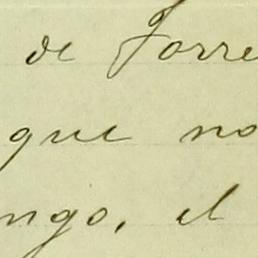 de Torre
que no
ngo, el